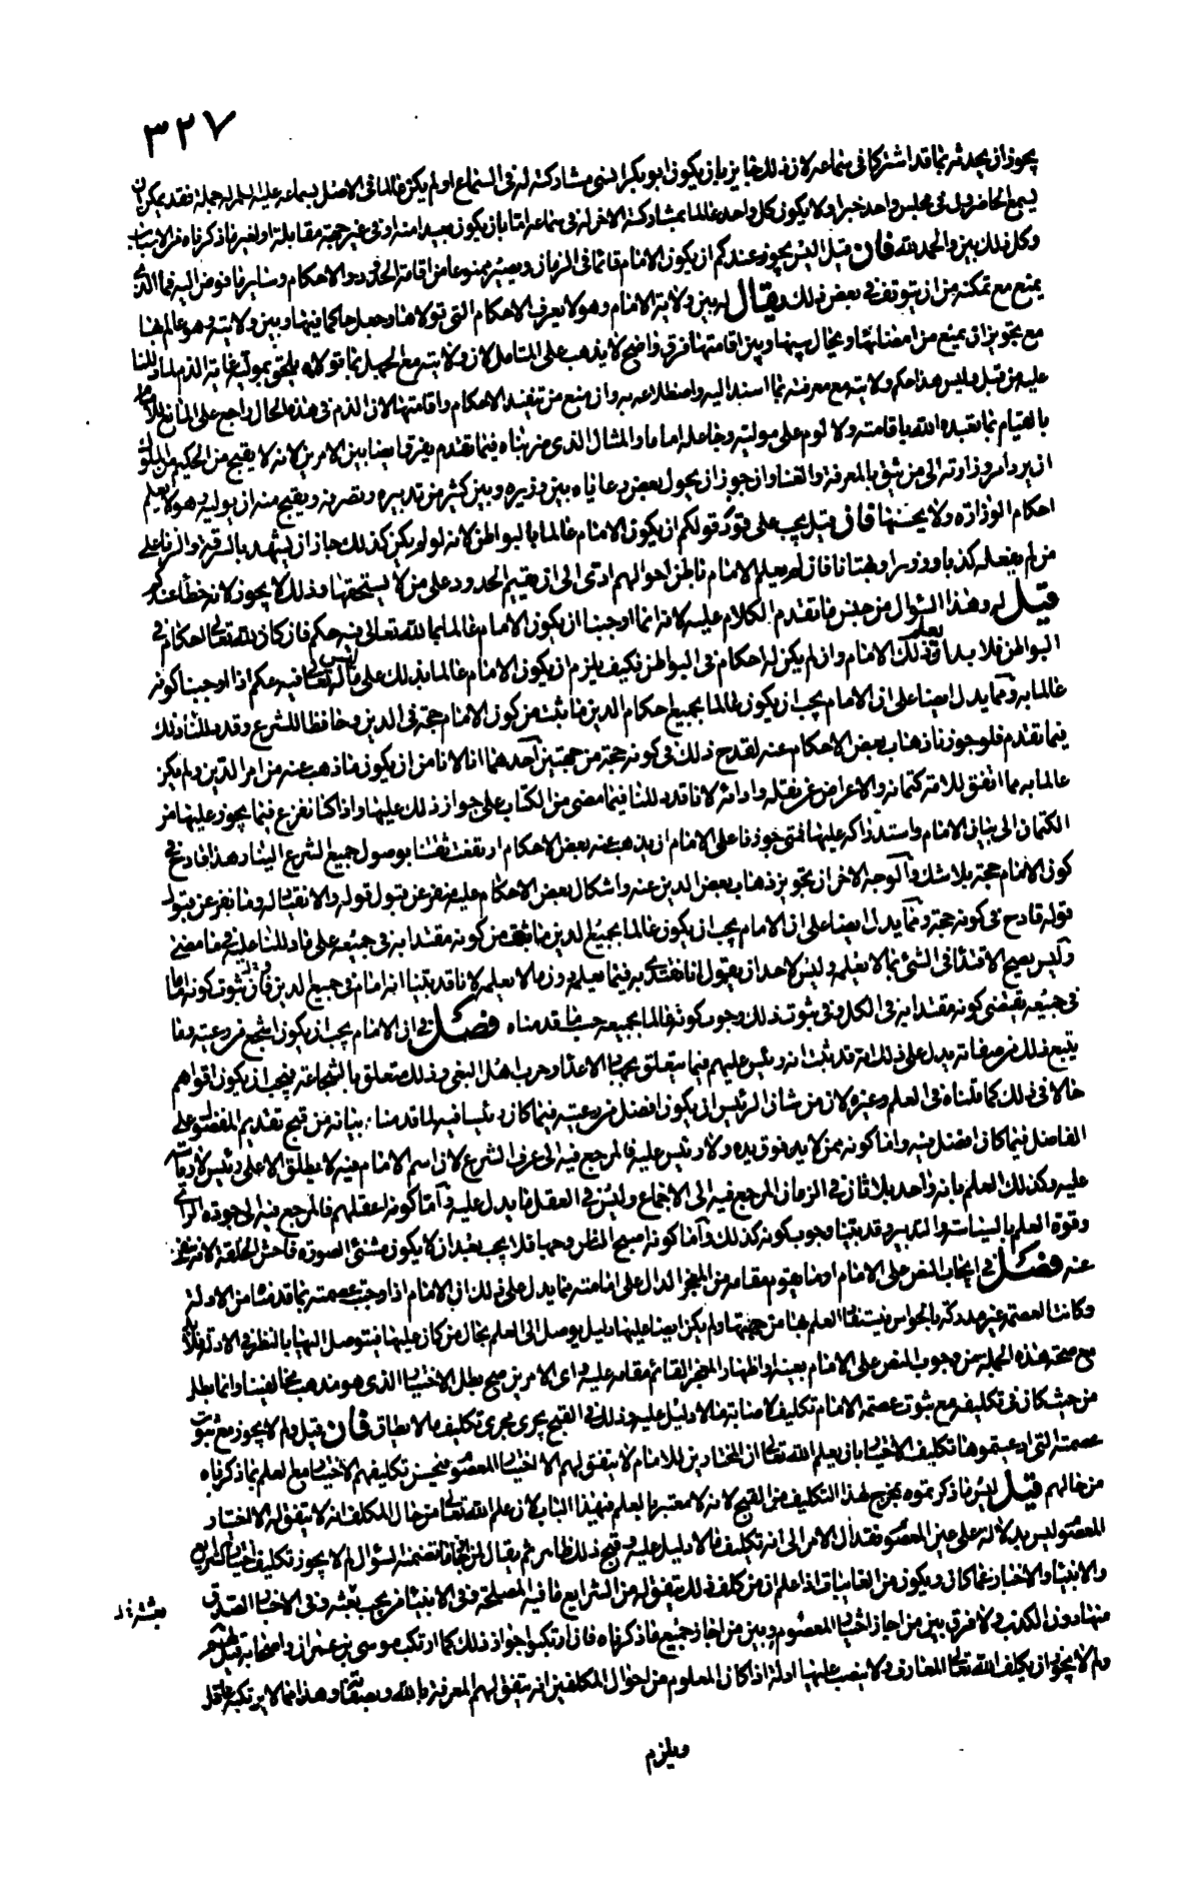 ٣٢٧
يجوز ان يحدثه بما قد اشتركا في سماعه لان ذلك جايز بان يكون ابو بكر نسى مشاركته له في السماع او لم يكن عالما في الاصل بسماعه عليه السلم له جملة فقد يمكن ان
يسمع الحاضرون في مجلس واحد خبرا ولا يكون كل واحد عالما بمشاركة الاخر له في سماعه اما بان يكون بعيدا منه او في غير جهة مقابلة او لغير ما ذكرناه من الاسباب
وكل ذلك بين والحمد لله فان قيل اليس يجوز عندكم ان يكون الامام قائما في الزمان ويصير ممنوعا من اقامة الحدود والاحكام وساير ما فوض اليه فما الذى
يمنع مع تمكنه من ان يتوقف في بعض ذلك يقال له بين ولاية الامام وهو لا يعرف الاحكام التى تولاها وجعل حاكما فيها وبين ولايته وهو عالم بها
مع تجويز ان يمنع من امضائها ويحال بينها وبين اقامتها فرق واضح لا يذهب على المتامل لان ولايته مع الجهل بما تولاه يلحق بموليه غاية الذم لما دللنا
عليه من قبل وليس هذا حكم ولايته مع معرفته بما اسند اليه واضطلاعه به وان منع من تنفيذ الاحكام واقامتها لان الذم في هذه الحال راجع على المانع للامام
بالقيام بما تعبده الله باقامته ولا لوم على موليه وجاعله اماما والمثال الذى ضربناه فيما تقدم يفرق ايضا بين الامرين لانه لا يقبح من الحكيم من الملوك
ان يرد امر وزارته الى من يثق بالمعرفة والغنا وان جوز ان يحول بعض رعاياه بين وزيره وبين كثير من تدبيره وتصرفه ويقبح منه ان يوليه وهو لا يعلم
احكام الوزارة ولا يحسنها فان قيل يجب على قود قولكم ان يكون الامام عالما بالبواطن لانه لو لم يكن كذلك جاز ان يشهد بالسرقة والزنا على
من لم يفعله كذبا وزورا وبهتانا فان لم يعلم الامام باطن احوالهم ادى الى ان يقيم الحدود على من لا يستحقها وذلك لا يجوز لانه خطأ عندكم
قيل له هذا السؤال من جنس ما تقدم الكلام عليه لانا انما اوجبنا ان يكون الامام عالما بما لله تعالى فيه حكم فان كان لله تعالى احكام في
البواطن فلا بد ان يعلم ذلك الامام وان لم يكن له احكام في البواطن فكيف يلزم ان يكون الامام عالما بذلك على ما ليس لله تعالى فيه حكم اذا اوجبنا كونه
عالما به ومما يدل ايضا على ان الامام يجب ان يكون عالما بجميع احكام الدين ما ثبت من كون الامام حجة في الدين وحافظا للشرع وقد دللنا على ذلك
فيما تقدم فلو جوزنا ذهاب بعض الاحكام عنه لقدح ذلك في كونه حجة من جهتين احدهما انا لا نامن ان يكون ما ذهب عنه من امر الدين ولم يكن
عالما به مما اتفق للامة كتمانه والاعراض عن نقله وادائه لانا قد دللنا فيما مضى من الكتاب على جواز ذلك عليها واذا كنا نفزع فيما يجوز عليها من
الكتمان الى بيان الامام واستدراكه عليها فمتى جوزنا على الامام ان يذهب عنه بعض الاحكام ارتفعت ثقتنا بوصول جميع الشرع الينا وهذا قادح في
كون الامام حجة بلا شك والوجه الاخر ان تجويز ذهاب بعض الدين عنه واشكال بعض الاحكام عليه منفر عن قبول قوله والانقياد له وما نفر عن قبول
قوله قادح في كونه حجة ومما يدل ايضا على ان الامام يجب ان يكون عالما بجميع الدين ما ثبت من كونه مقتدا به في جميعه على ما دللنا عليه فيما مضى
وليس يصح الاقتدا في الشئ بما لا يعلم وليس لاحد ان يقول انما يقتدى به فيما يعلمه دون ما لا يعلمه لانا قد بينا انه امام في جميع الدين وان ثبوت كونه اماما
في جميعه يقتضى كونه مقتدا به في الكل وفي ثبوت ذلك وجوب كونه عالما بجميعه حسب ما قدمناه فصل في ان الامام يجب ان يكون اشجع من رعيته وما
يتبع ذلك من صفاته يدل على ذلك انه قد ثبت انه رئيس عليهم فيما يتعلق بجهاد الاعدا وحرب اهل البغي وذلك متعلق بالشجاعة فيجب ان يكون اقواهم
حالا في ذلك كما قلناه في العلم وغيره لان من شان الرئيس ان يكون افضل من رعيته فيما كان رئيسا فيه لما قدمنا بيانه من قبح تقديم المفضول على
الفاضل فيما كان افضل فيه واما كونه ممن لا يد فوق يده ولا رئيس عليه فالمرجع فيه الى عرف الشرع لان اسم الامام فيه لا يطلق الا على رئيس لا رياسة
عليه وكذلك العلم بانه واحد بلا ثان في الزمان المرجع فيه الى الاجماع وليس في العقل ما يدل عليه واما كونه اعقلهم فالمرجع فيه الى جودة الراى
وقوة العلم بالسياسة والتدبير وقد بينا وجوب كونه كذلك واما كونه اصبح المنظر وجها فلا يجب بعد ان لا يكون مشنئ الصورة فاحش الخلقة لانه ينفر
عنه فصل في ايجاب النص على الامام او ما يقوم مقامه من المعجز الدال على امامته مما يدل على ذلك ان الامام اذا وجبت عصمته بما قدمنا من الادلة
وكانت العصمة غير مدركة بالحواس فيستفاد العلم بها من جهتها ولم يكن ايضا عليها دليل يوصل الى العلم بحال من كان عليها فيتوصل اليها بالنظر في الادلة فلا بد
مع صحة هذه الجملة من وجوب النص على الامام بعينه او اظهار المعجز القائم مقامه عليه واى الامرين صح بطل الاختيار الذى هو مذهب مخالفينا وانما بطل
من حيث كان في تكليفه مع ثبوت عصمة الامام تكليف لاصابة ما لا دليل عليه وذلك في القبح يجرى مجرى تكليف ما لا يطاق فان قيل ولم لا يجوز مع ثبوت
عصمته التى ادعيتموها تكليف الاختيار بان يعلم الله تعالى ان المختارين للامام لا يتفق لهم الا اختيار المعصوم فيحسن تكليفهم الاختيار مع العلم بما ذكرناه
من حالهم قيل ليس ما ذكرتموه بمخرج لهذا التكليف من القبح لانه لا معتبر بالعلم في هذا الباب لان علم الله تعالى من حال المكلف انه لا يتفق له الا اختيار
المعصوم ليس بدلالة على عين المعصوم فقد آل الامر الى انه تكليف ما لا دليل عليه وقبح ذلك ظاهر ثم يقال لمن اجاز ما تضمنه السؤال لم لا يجوز تكليف اختيار الشرايع
والانبيا والاخبار عما كان ويكون من الغايبات اذا علم ان من كلف ذلك يتفق له من الشرايع ما فيه المصلحة وفي الانبيا من يجب بعثه وفي الاخبار الصدق
بعثته
منها دون الكذب ولا فرق بين من اجاز اختيار المعصوم وبين من اجاز جميع ما ذكرناه فان ارتكبوا جواز ذلك كما ارتكب موسى بن عمران واصحابه قيل لهم
ولم لا يجوز ان يكلف الله تعالى المعارف ولا ينصب عليها ادلة اذا كان المعلوم من احوال المكلفين انه يتفق لهم المعرفة بالله وبصفاته وهذا مما لا يرتكبه عاقل
ويلزم